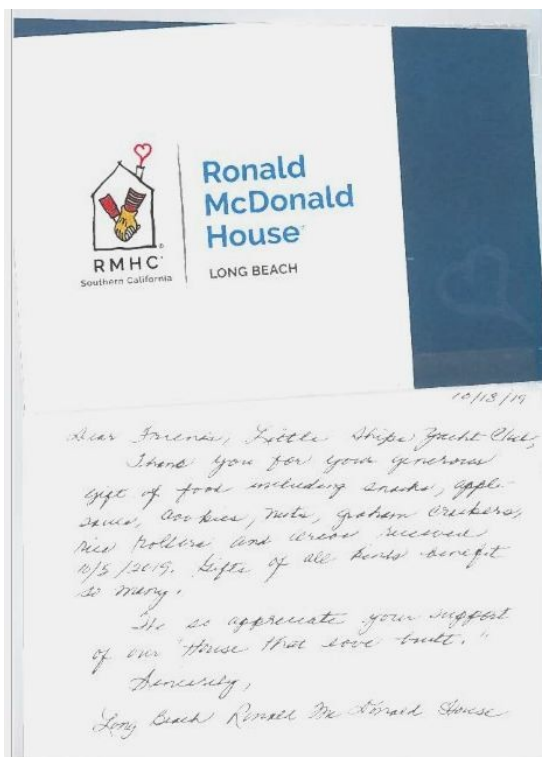 RMHC
Southern California
Ronald
McDonald
House
LONG BEACH
10/13/19
Dear Friends, Little Ships Yacht Club,
Thank you for your generous
gift of food including snacks, apple
sauce, cookies, nuts, graham crackers,
rice rollers and received
10/5/2019. Gifts of all kinds benefit
so many.
We so appreciate your support
of our "House that love built."
Sincerely,
Long Beach Ronald McDonald House